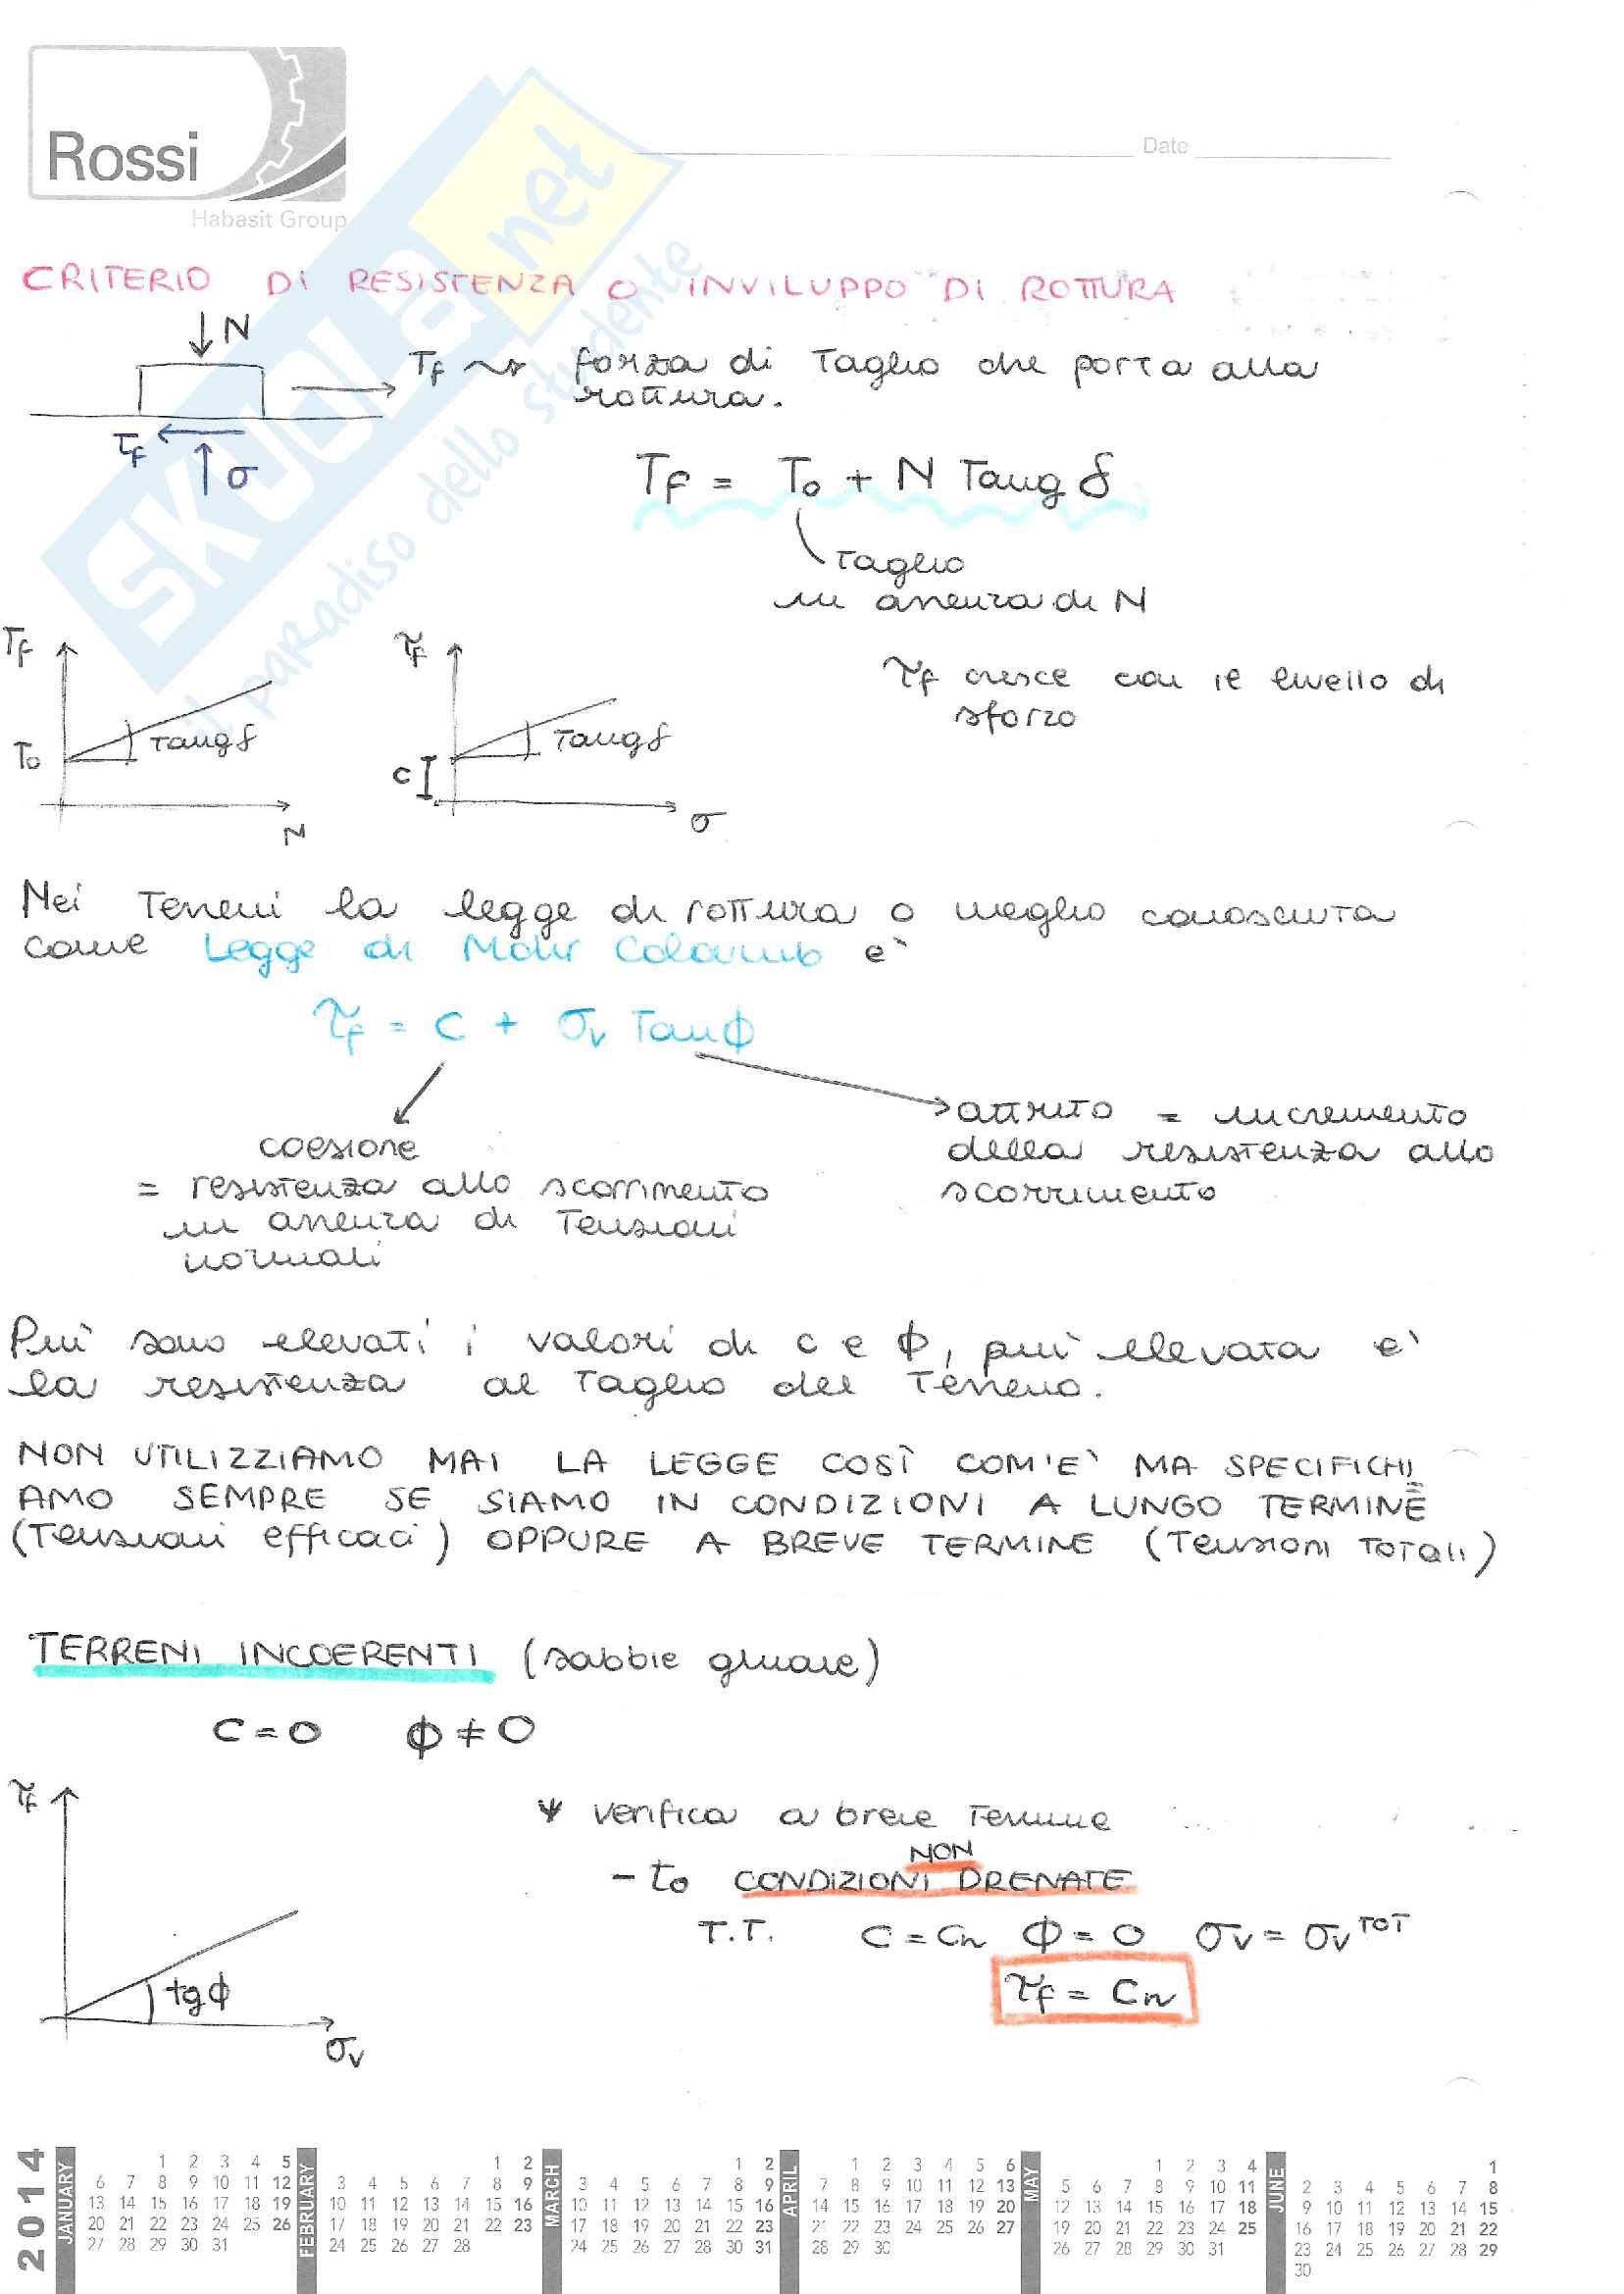 Rossi
Habasit Group
Date
SKUOLA.net
il paradiso dello studente
CRITERIO DI RESISTENZA O INVILUPPO DI ROTTURA
N
Tf ~> forza di taglio che porta alla
rottura.
τf
σ
Tf = To + N Tang δ
taglio
in assenza di N
Tf
To
Tang δ
N
τf
c
Tang δ
σ
τf cresce con il livello di
sforzo
Nei terreni la legge di rottura o meglio conosciuta
come Legge di Mohr Colomb è
τf = c + σv Tan ϕ
coesione
= resistenza allo scorrimento
in assenza di tensioni
normali
attrito = incremento
della resistenza allo
scorrimento
Più sono elevati i valori di c e ϕ, più elevata è
la resistenza al taglio del terreno.
NON UTILIZZIAMO MAI LA LEGGE COSÌ COM'È MA SPECIFICHI
AMO SEMPRE SE SIAMO IN CONDIZIONI A LUNGO TERMINE
(Tensioni efficaci) OPPURE A BREVE TERMINE (Tensioni totali)
TERRENI INCOERENTI (sabbie ghiaie)
c = 0 ϕ ≠ 0
τf
tg ϕ
σv
* verifica a breve termine
NON
- to CONDIZIONI DRENATE
T.T. c = cu ϕ = 0 σv = σv TOT
τf = cu
2014
JANUARY
1 2 3 4 5
6 7 8 9 10 11 12
13 14 15 16 17 18 19
20 21 22 23 24 25 26
27 28 29 30 31
FEBRUARY
1 2
3 4 5 6 7 8 9
10 11 12 13 14 15 16
17 18 19 20 21 22 23
24 25 26 27 28
MARCH
1 2
3 4 5 6 7 8 9
10 11 12 13 14 15 16
17 18 19 20 21 22 23
24 25 26 27 28 29 30 31
APRIL
1 2 3 4 5 6
7 8 9 10 11 12 13
14 15 16 17 18 19 20
21 22 23 24 25 26 27
28 29 30
MAY
1 2 3 4
5 6 7 8 9 10 11
12 13 14 15 16 17 18
19 20 21 22 23 24 25
26 27 28 29 30 31
JUNE
1
2 3 4 5 6 7 8
9 10 11 12 13 14 15
16 17 18 19 20 21 22
23 24 25 26 27 28 29
30